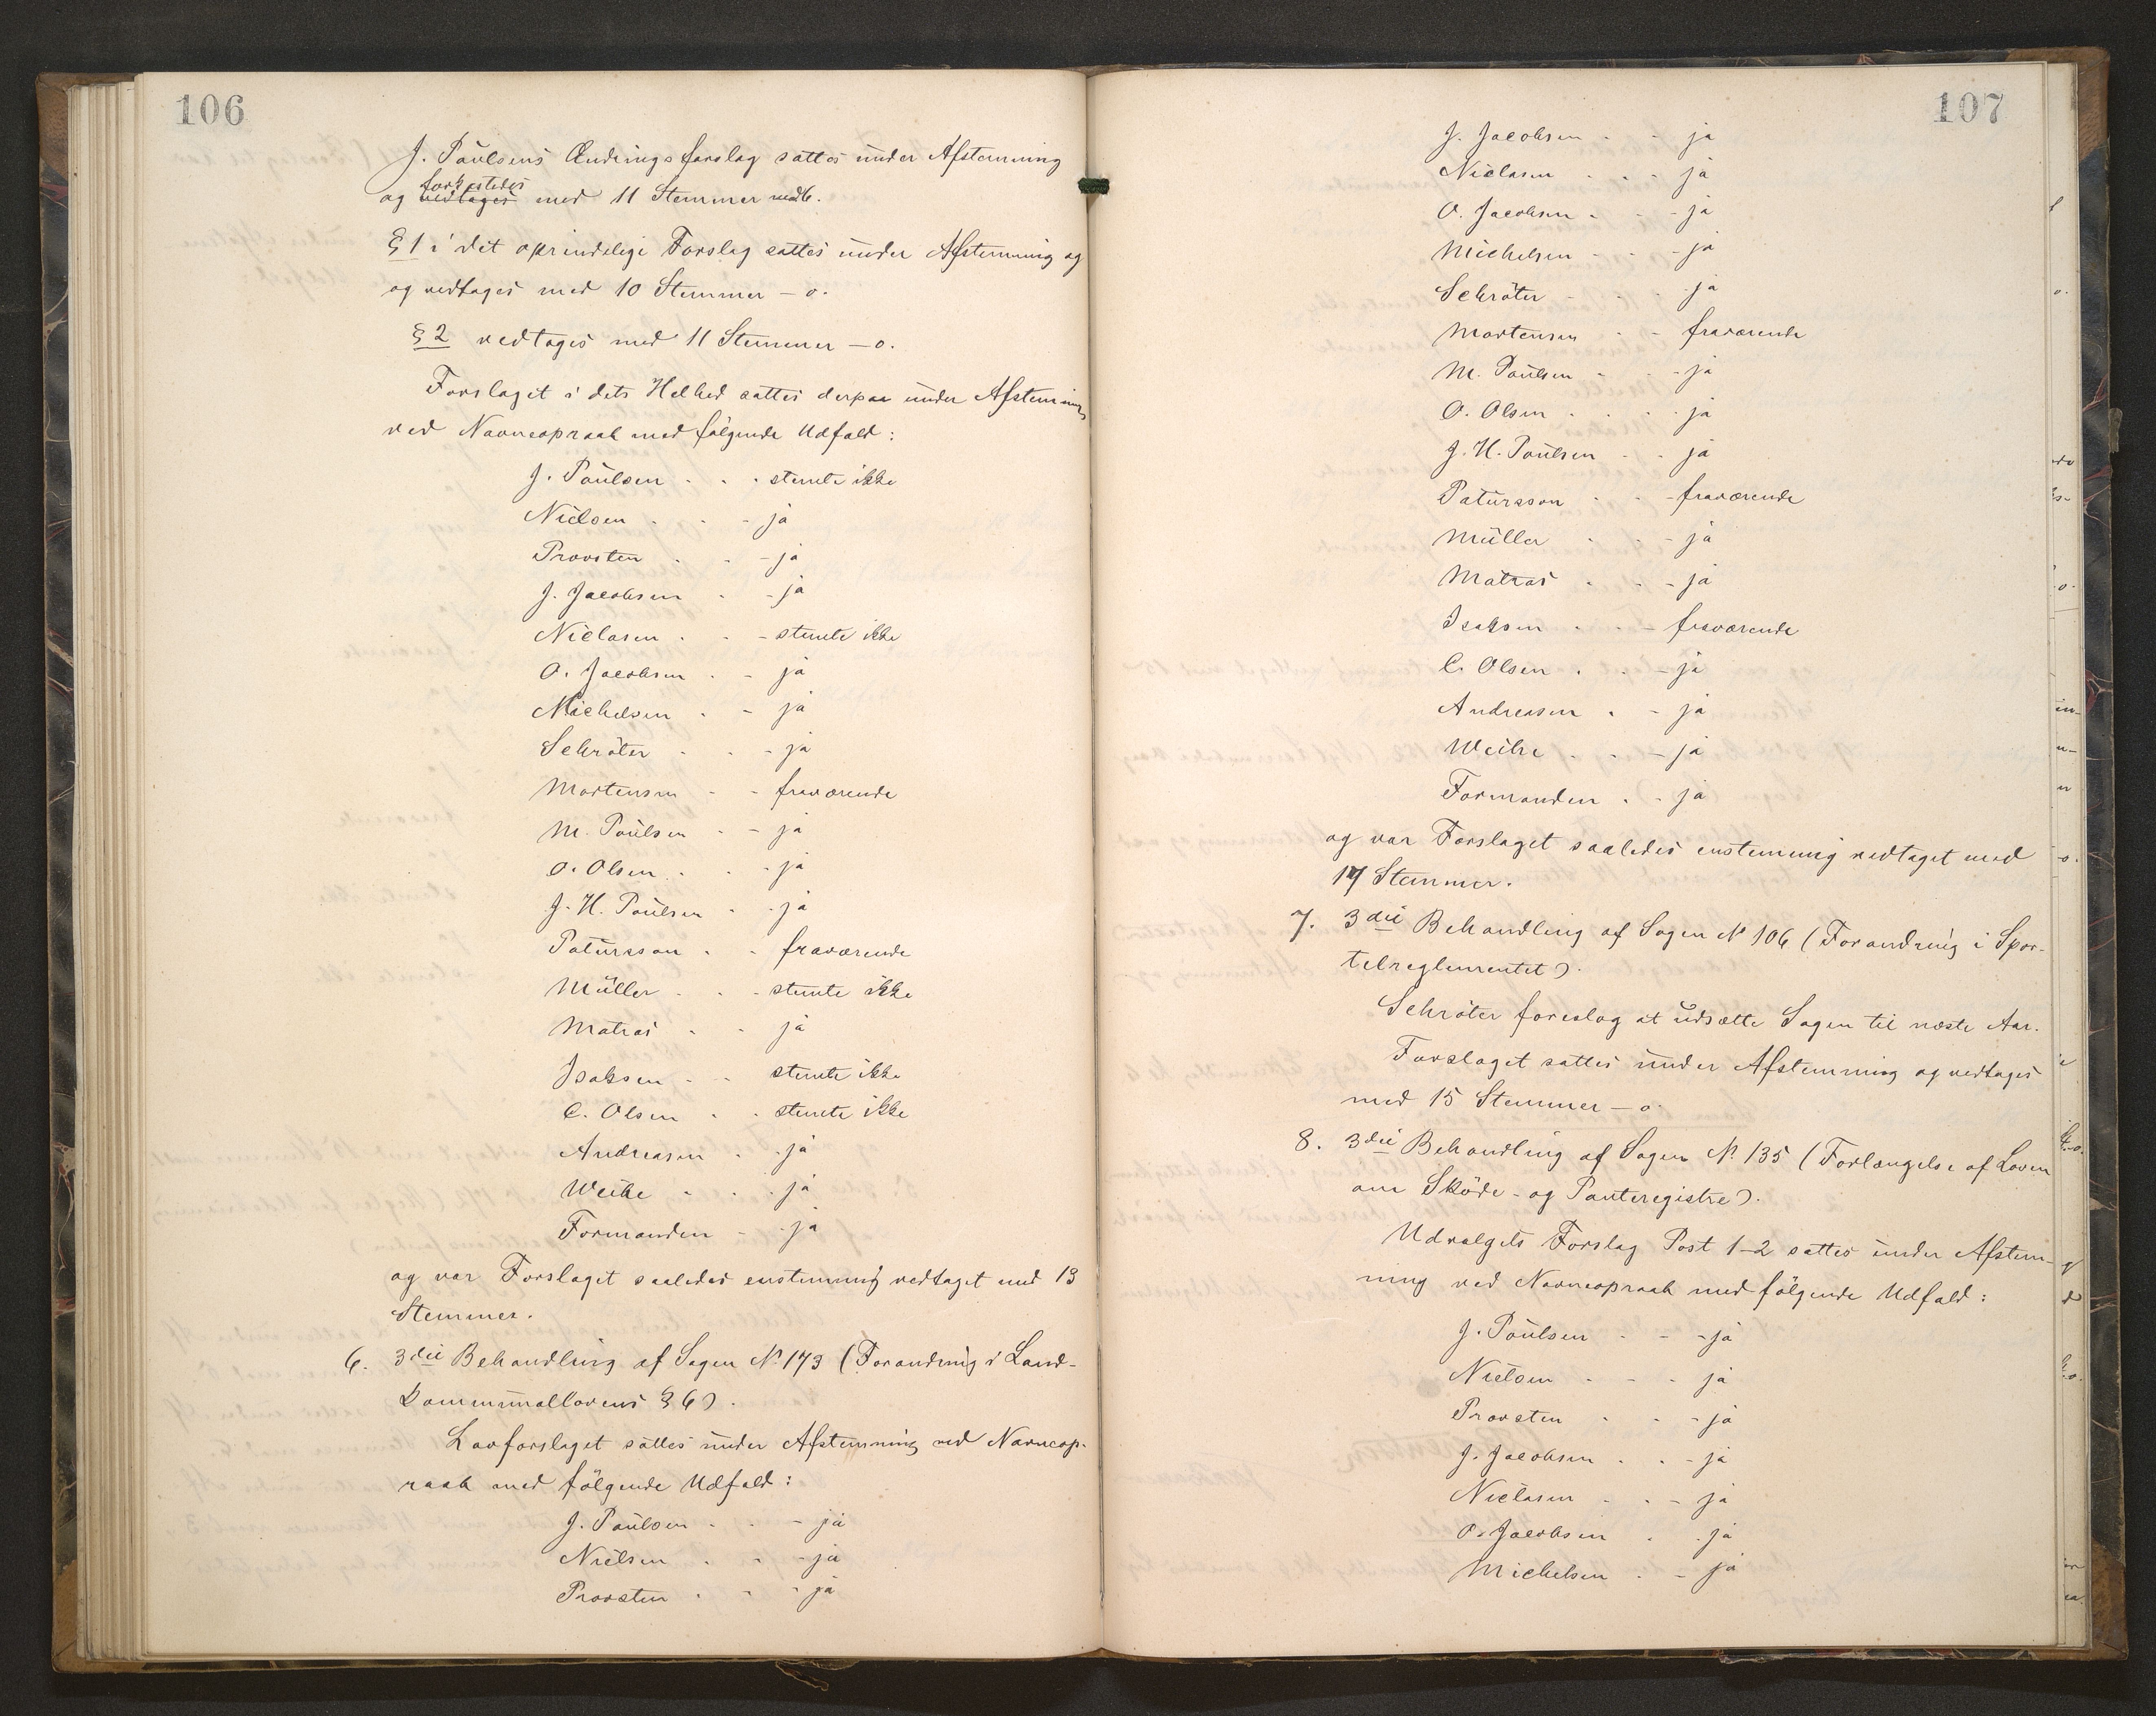 106
J. Poulsens Ændringsforslag sattes under Afstemning
forkastedes
og vedtages med 11 Stemmer mod 6.
§ 1 i det oprindelige Forslag sattes under Afstemning og
og vedtages med 10 Stemmer – 0.
§ 2 vedtages med 11 Stemmer – 0.
Forslaget i dets Helhed sattes derpaa under Afstemning
ved Navneopraab med følgende Udfald:
J. Poulsen - - - stemte ikke
Nielsen - - - ja
Provsten - - - ja
J. Jacobsen - - ja
Niclasen - - - stemte ikke
O. Jacobsen - - ja
Michelsen - - ja
Schröter - - - ja
Mortensen - - fraværende
M. Poulsen - - ja
O. Olsen - - - ja
J. H. Poulsen - - ja
Patursson - - fraværende
Müller - - - stemte ikke
Matras - - ja
Isaksen - - stemte ikke
C. Olsen - - stemte ikke
Andreasen - - ja
Weihe - - - ja
Formanden - - ja
og var Forslaget saaledes enstemmig vedtaget med 13
Stemmer.
6. 3die Behandling af Sagen No 173 (Forandring i Land-
kommunallovens § 6).
Lovforslaget sattes under Afstemning ved Navneop-
raab med følgende Udfald:
J. Poulsen - - - ja
Nielsen - - - ja
Provsten - - - ja
107
J. Jacobsen - - ja
Niclasen - - - ja
O. Jacobsen - - - ja
Michelsen - - - ja
Schröter - - - ja
Mortensen - - fraværende
M. Poulsen - - - ja
O. Olsen - - - - ja
J. H. Poulsen - - ja
Patursson - - - fraværende
Müller - - - ja
Matras - - - ja
Isaksen - - - fraværende
C. Olsen - - - ja
Andreasen - - ja
Weihe - - - ja
Formanden - - ja
og var Forslaget saaledes enstemmig vedtaget med
17 Stemmer.
7. 3die Behandling af Sagen No 106 (Forandring i Spor-
telreglementet).
Schröter foreslog at udsætte Sagen til næste Aar.
Forslaget sattes under Afstemning og vedtages
med 15 Stemmer – 0.
8. 3die Behandling af Sagen No 135 (Forlængelse af Loven
om Skøde- og Panteregistre).
Udvalgets Forslag Post 1-2 sattes under Afstem-
ning ved Navneopraab med følgende Udfald:
J. Poulsen - - - ja
Nielsen - - - ja
Provsten - - - ja
J. Jacobsen - - - ja
Niclasen - - - ja
O. Jacobsen - - ja
Michelsen - - ja